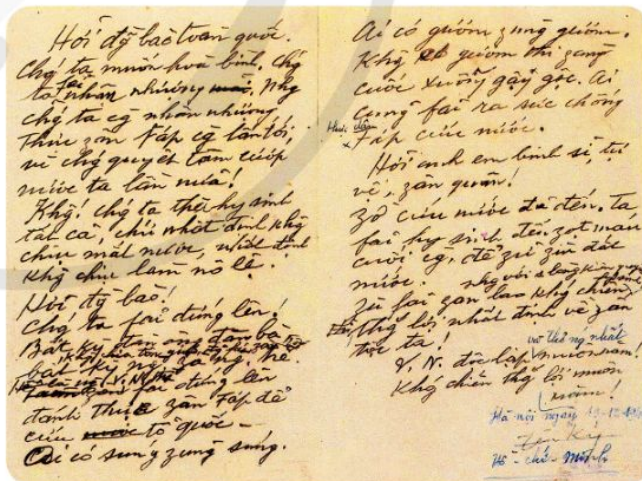 Hỡi đg̃ bào toàn quốc.
Chg' ta muốn hoà bình, chg'
ta fải nhân nhượng, nhg
chg' ta cg̀ nhân nhượng
thực zân Fáp cg̀ lấn tới,
vì chg' quyết tâm cướp
nước ta lần nữa!
Khg! chg' ta thà hy sinh
tất cả, chứ nhất định khg
chịu mất nước, nhất định
khg chịu làm nô lệ.
Hỡi đg̀ bào!
Chg' ta fải đứng lên!
Bất kỳ đàn ông đàn bà
bất kỳ ng
fải đứng lên
đánh thực zân Fáp để
cứu nước tổ quốc –
Ai có súng zùng súng.
Ai có gươm zùng gươm.
Khg có gươm thì zùng
cuốc xuổng gậy gộc. Ai
cũng fải ra sức chống
thực dân
Fáp cứu nước.
Hỡi anh em binh sĩ, tự
vệ, zân quân!
Zờ cứu nước đã đến. Ta
fải hy sinh đến zọt máu
cuối cg̀, để zữ zìn đất
nước.
Zù fải zan lao kháng chiến,
thg' lợi nhất định về zân
tộc ta!
và thống nhất
V. N. độc lập muôn năm!
Khg' chiến thg' lợi muôn
năm!
Hà nội ngày 19-12-1946
Hồ-chí Minh